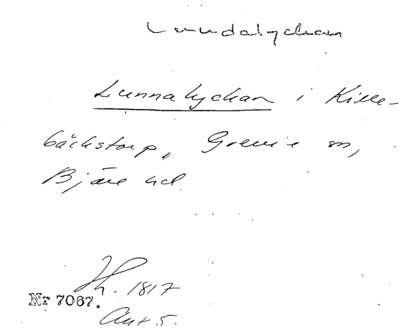 Lunnalyckan
Lunnalyckan i Kille-
bäckstorp, Grevie sn,
Bjäre hd.
Jh. 1817
Nr 7067.
Akt 5.